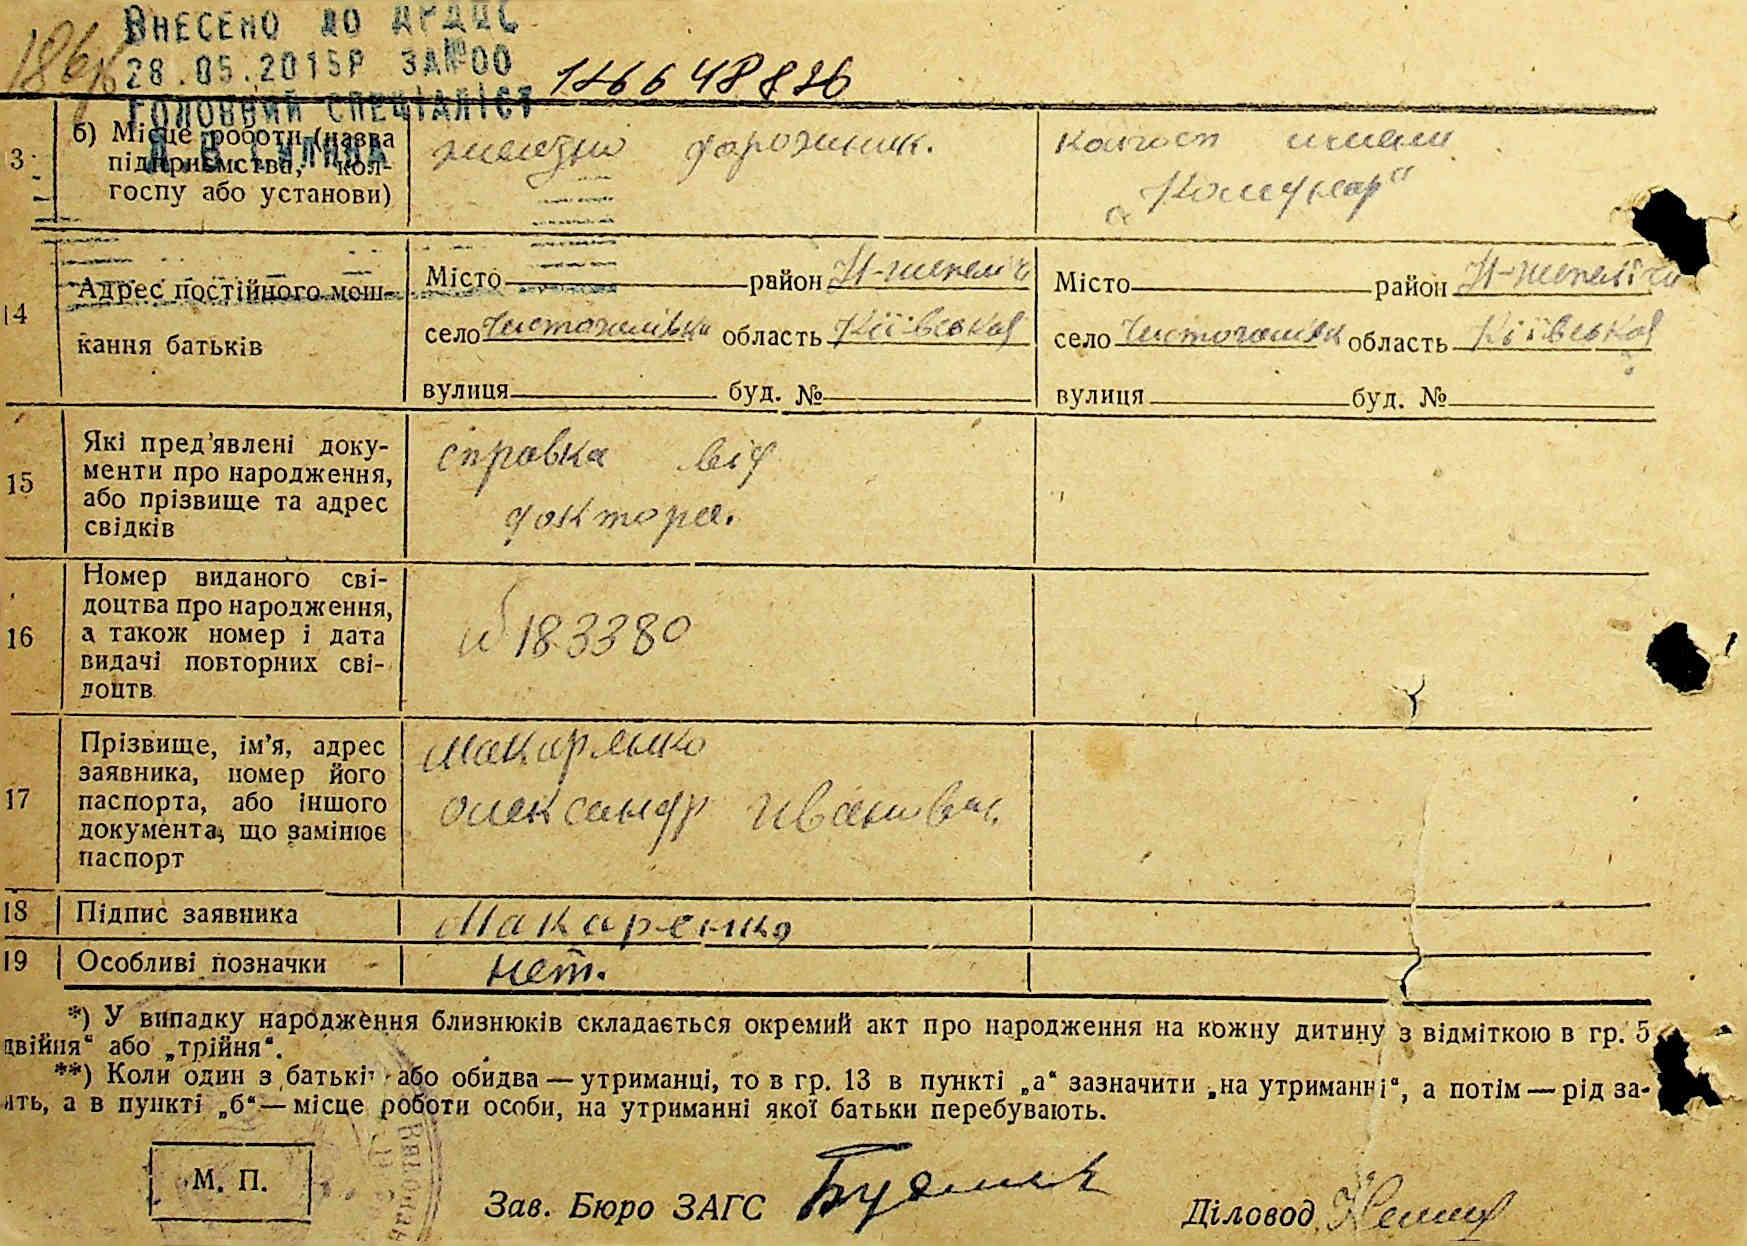 ВНЕСЕНО ДО ДРАЦС
28.05.2015Р ЗА №00
ГОЛОВНИЙ СПЕЦІАЛІСТ
б) Місце роботи (назва
підприємства, кол-
госпу або установи)
дорожник.
колгосп имени
„Комунар“
14
Адрес постійного меш-
кання батьків
Місто район
село область Київська
вулиця буд. №
Місто район
село область Київська
вулиця буд. №
15
Які пред'явлені доку-
менти про народження,
або прізвище та адрес
свідків
справка від
доктора.
16
Номер виданого сві-
доцтва про народження,
а також номер і дата
видачі повторних сві-
доцтв
183380
17
Прізвище, ім'я, адрес
заявника, номер його
паспорта, або іншого
документа, що замінює
паспорт
Макаренко
Олександр Иванович
18 Підпис заявника
Макаренко
19 Особливі позначки
нет.
*) У випадку народження близнюків складається окремий акт про народження на кожну дитину з відміткою в гр. 5
двійня“ або „трійня“.
**) Коли один з батьків або обидва — утриманці, то в гр. 13 в пункті „а“ зазначити „на утриманні“, а потім — рід за-
ять, а в пункті „б“ — місце роботи особи, на утриманні якої батьки перебувають.
М. П.
Зав. Бюро ЗАГС
Діловод